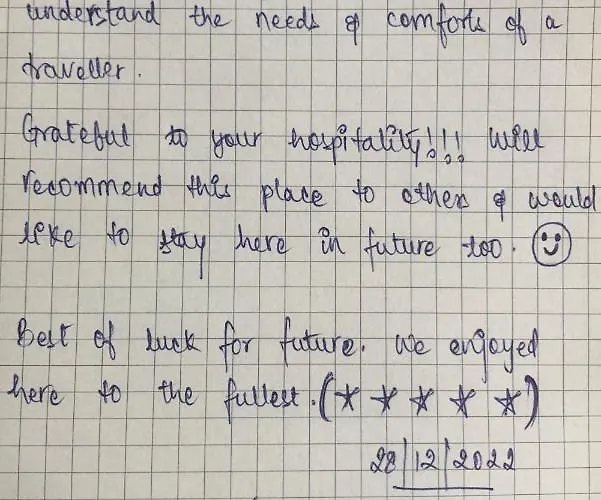 understand the needs & comforts of a
traveller.
Grateful to your hospitality!!! will
recommend this place to others & would
like to stay here in future too. ☺
Best of luck for future. We enjoyed
here to the fullest. (★ ★ ★ ★ ★)
28/12/2022